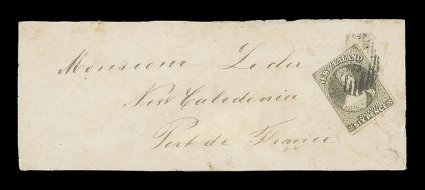 Monsieur Loder
New Caledonia
Port de France
NEW ZEALAND
SIX PENCE